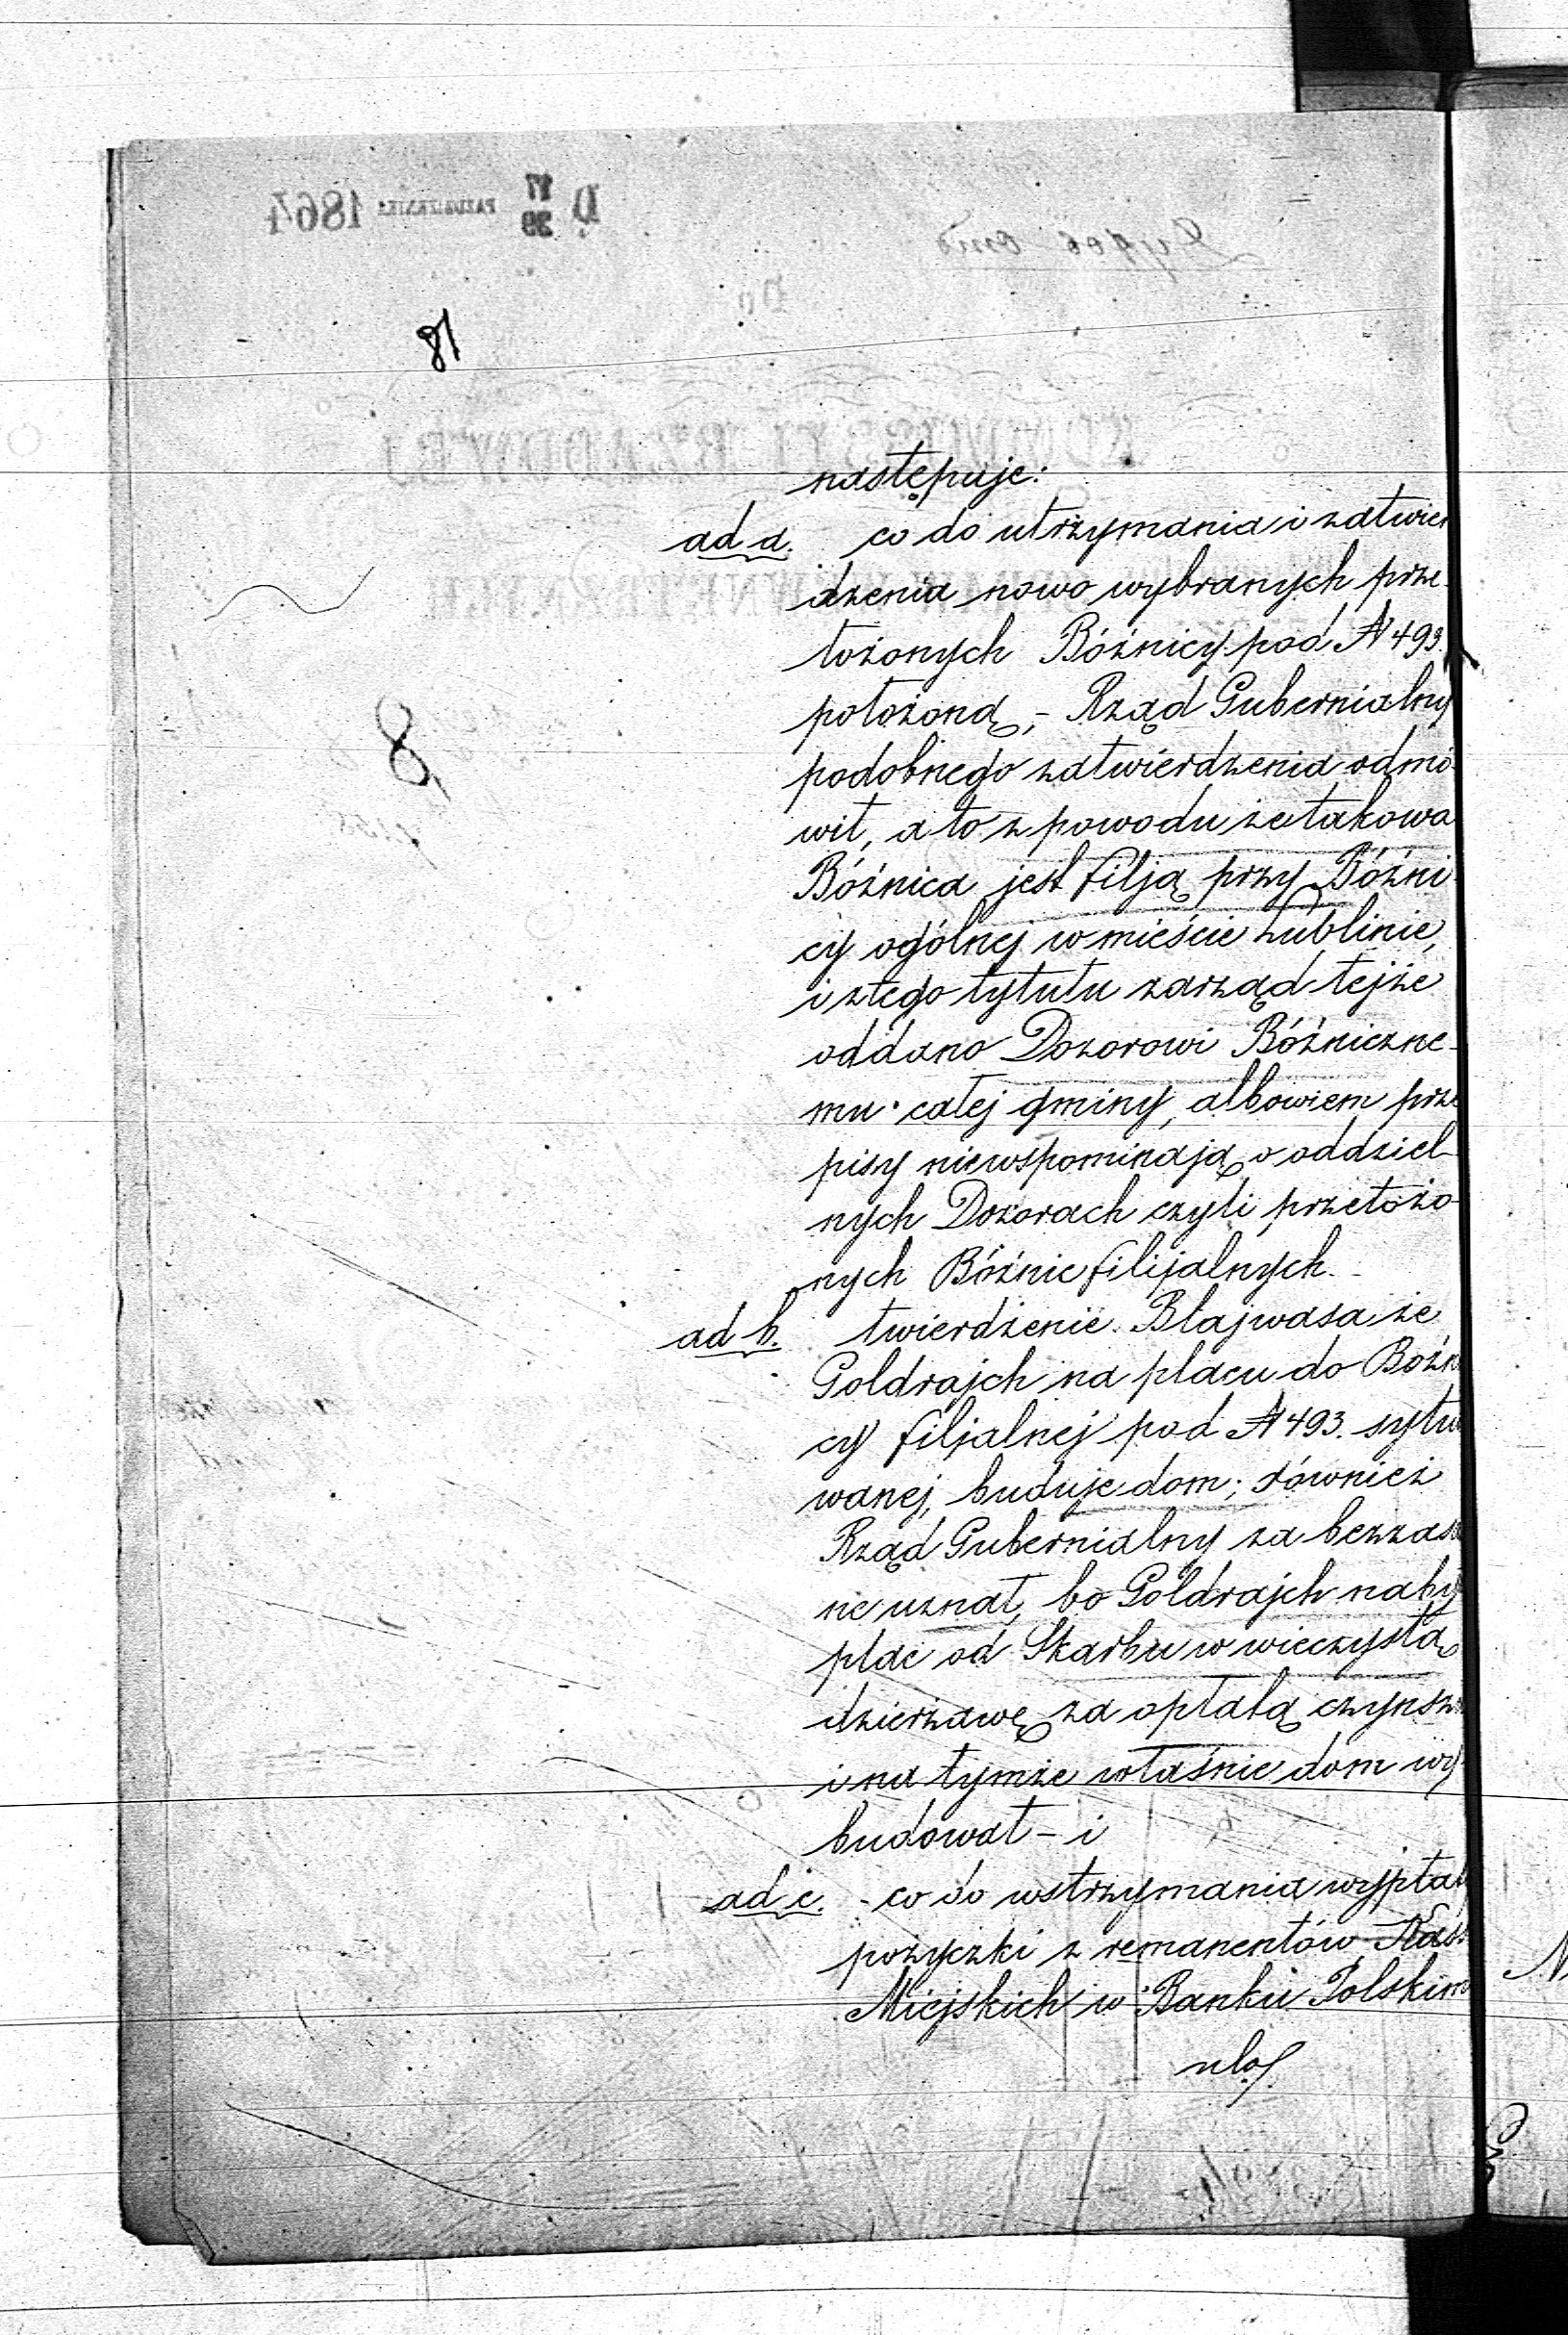 81
następuje:
ad a. co do utrzymania i zatwier
dzenia nowo wybranych prze-
łożonych Bóźnicy pod N 493.
położoną,- Rząd Gubernialny
podobnego zatwierdzenia odmó
wił, a to z powodu że takowa
Bóźnica jest filją przy Bóźni
cy ogólnej w mieście Lublinie,
i z tego tytułu zarząd tejże
oddano Dozorowi Bóźniczne-
mu całej gminy, albowiem prze
pisy niewspominają o oddziel-
nych Dozorach czyli przełożo-
nych Bóźnic filijalnych.
ad b. twierdzenie Blajwasa że
Goldrajch na placu do Boźni
cy filjalnej pod N 493. sytuo
wanej, buduje dom; również
Rząd Gubernialny za bezzasa
ne uznał, bo Goldrajch naby
plac od Skarbu w wieczystą
dzierzawę za opłatą czynszu
i na tymże właśnie dom wy-
budował - i
ad c. - co do wstrzymania wypłat
pożyczki z remanentów Kass
Miejskich w Banku Polskim
8